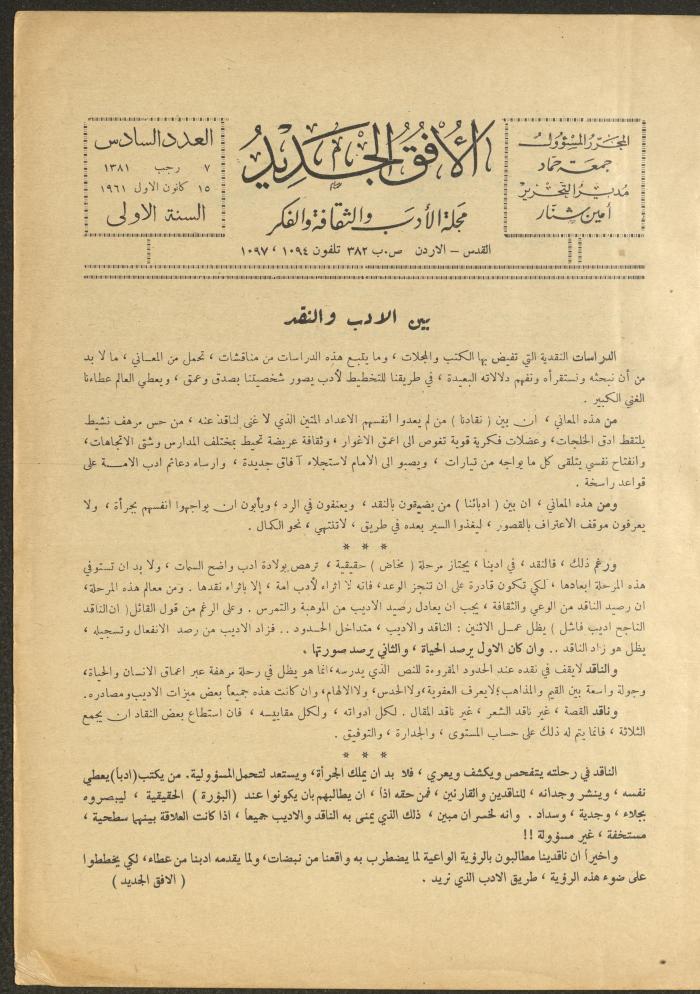 المحرر المسؤول
جمعة حماد
مدير التحرير
أمين شنار
الأفق الجديد
مجلة الأدب والثقافة والفكر
القدس - الاردن ص.ب ٣٨٢ تلفون ١٠٩٤ ، ١٠٩٧
العدد السادس
٧ رجب ١٣٨١
١٥ كانون الاول ١٩٦١
السنة الاولى
بين الادب والنقد
الدراسات النقدية التي تفيض بها الكتب والمجلات ، وما يتبع هذه الدراسات من مناقشات ، تحمل من المعاني ، ما لا بد
من أن نبحثه ونستقرأه ونفهم دلالاته البعيدة ، في طريقنا للتخطيط لأدب يصور شخصيتنا بصدق وعمق ، ويعطي العالم عطاءنا
الغني الكبير .
من هذه المعاني ، ان بين ( نقادنا ) من لم يعدوا أنفسهم الاعداد المتين الذي لا غنى لناقد عنه ، من حس مرهف نشيط
يلتقط ادق الخلجات، وعضلات فكرية قوية تغوص الى اعمق الاغوار ، وثقافة عريضة تحيط بمختلف المدارس وشتى الاتجاهات،
وانفتاح نفسي يتلقى كل ما يواجه من تيارات ، ويصبو الى الامام لاستجلاء آفاق جديدة ، وارساء دعائم ادب الامة على
قواعد راسخة .
ومن هذه المعاني ، ان بين ( ادبائنا ) من يضيقون بالنقد ، ويعنفون في الرد ، ويأبون ان يواجهوا انفسهم بجرأة ، ولا
يعرفون موقف الاعتراف بالقصور ، ليغذوا السير بعده في طريق ، لاتنتهي ، نحو الكمال .
* * *
ورغم ذلك ، فالنقد ، في ادبنا ، يجتاز مرحلة ( مخاض ) حقيقية ، ترهص بولادة ادب واضح السمات ، ولا بد ان تستوفي
هذه المرحلة ابعادها ، لكي تكون قادرة على ان تنجز الوعد، فانه لا اثراء لأدب امة ، إلا باثراء نقدها . ومن معالم هذه المرحلة،
ان رصيد الناقد من الوعي والثقافة ، يجب ان يعادل رصيد الاديب من الموهبة والتمرس . وعلى الرغم من قول القائل ( ان الناقد
الناجح اديب فاشل ) يظل عمل الاثنين : الناقد والاديب ، متداخل الحدود .. فزاد الاديب من رصد الانفعال وتسجيله ،
يظل هو زاد الناقد .. وان كان الاول يرصد الحياة ، والثاني يرصد صورتها .
والناقد لايقف في نقده عند الحدود المقروءة للنص الذي يدرسه، انما هو يظل في رحلة مرهفة عبر اعماق الانسان والحياة،
وجولة واسعة بين القيم والمذاهب، لايعرف العفوية، ولا الحدس، ولا الالهام، وان كانت هذه جميعاً بعض ميزات الاديب ومصادره.
وناقد القصة ، غير ناقد الشعر ، غير ناقد المقال . لكل ادواته ، ولكل مقاييسه ، فان استطاع بعض النقاد ان يجمع
الثلاثة ، فانما يتم له ذلك على حساب المستوى ، والجدارة ، والتوفيق .
* * *
الناقد في رحلته يتفحص ويكشف ويعري ، فلا بد ان يملك الجرأة، ويستعد لتحمل المسؤولية. من يكتب (ادبا) يعطي
نفسه ، وينشر وجدانه ، للناقدين والقارئين ، فمن حقه اذاً ، ان يطالبهم بان يكونوا عند (البؤرة) الحقيقية ، ليبصروه
بجلاء ، وجدية ، وسداد . وانه لخسران مبين ، ذلك الذي يمنى به الناقد والاديب جميعاً ، اذا كانت العلاقة بينهما سطحية ،
مستخفة ، غير مسؤولة !!
واخيراً ان ناقدينا مطالبون بالرؤية الواعية لما يضطرب به واقعنا من نبضات، ولما يقدمه ادبنا من عطاء، لكي يخططوا
على ضوء هذه الرؤية ، طريق الادب الذي نريد .
( الافق الجديد )